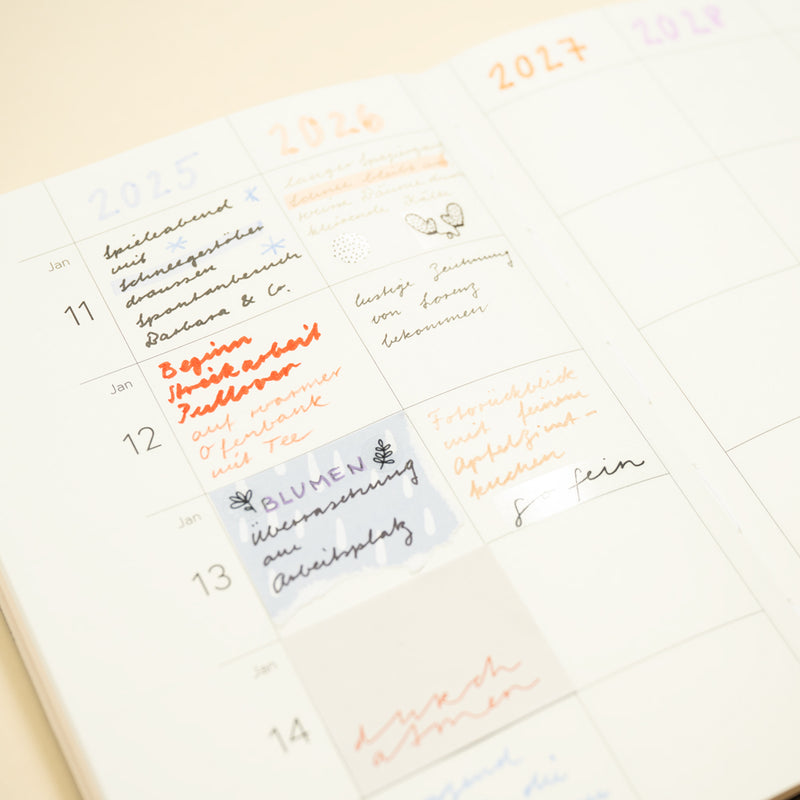 2025
2026
2027
2028
Jan
11
Spieleabend
mit
Schneegestöber
draussen
Spontanbesuch
Barbara & Co.
langer Spaziergang
Schnee bleibt
weisse Bäume
Kälte
Jan
12
Beginn
Strickarbeit
Pullover
auf warmer
Ofenbank
mit Tee
lustige Zeichnung
von Lorenz
bekommen
Jan
13
BLUMEN
Überraschung
am
Arbeitsplatz
Fotorückblick
mit feinem
Apfelzimt-
kuchen
so fein
Jan
14
durch
atmen
die